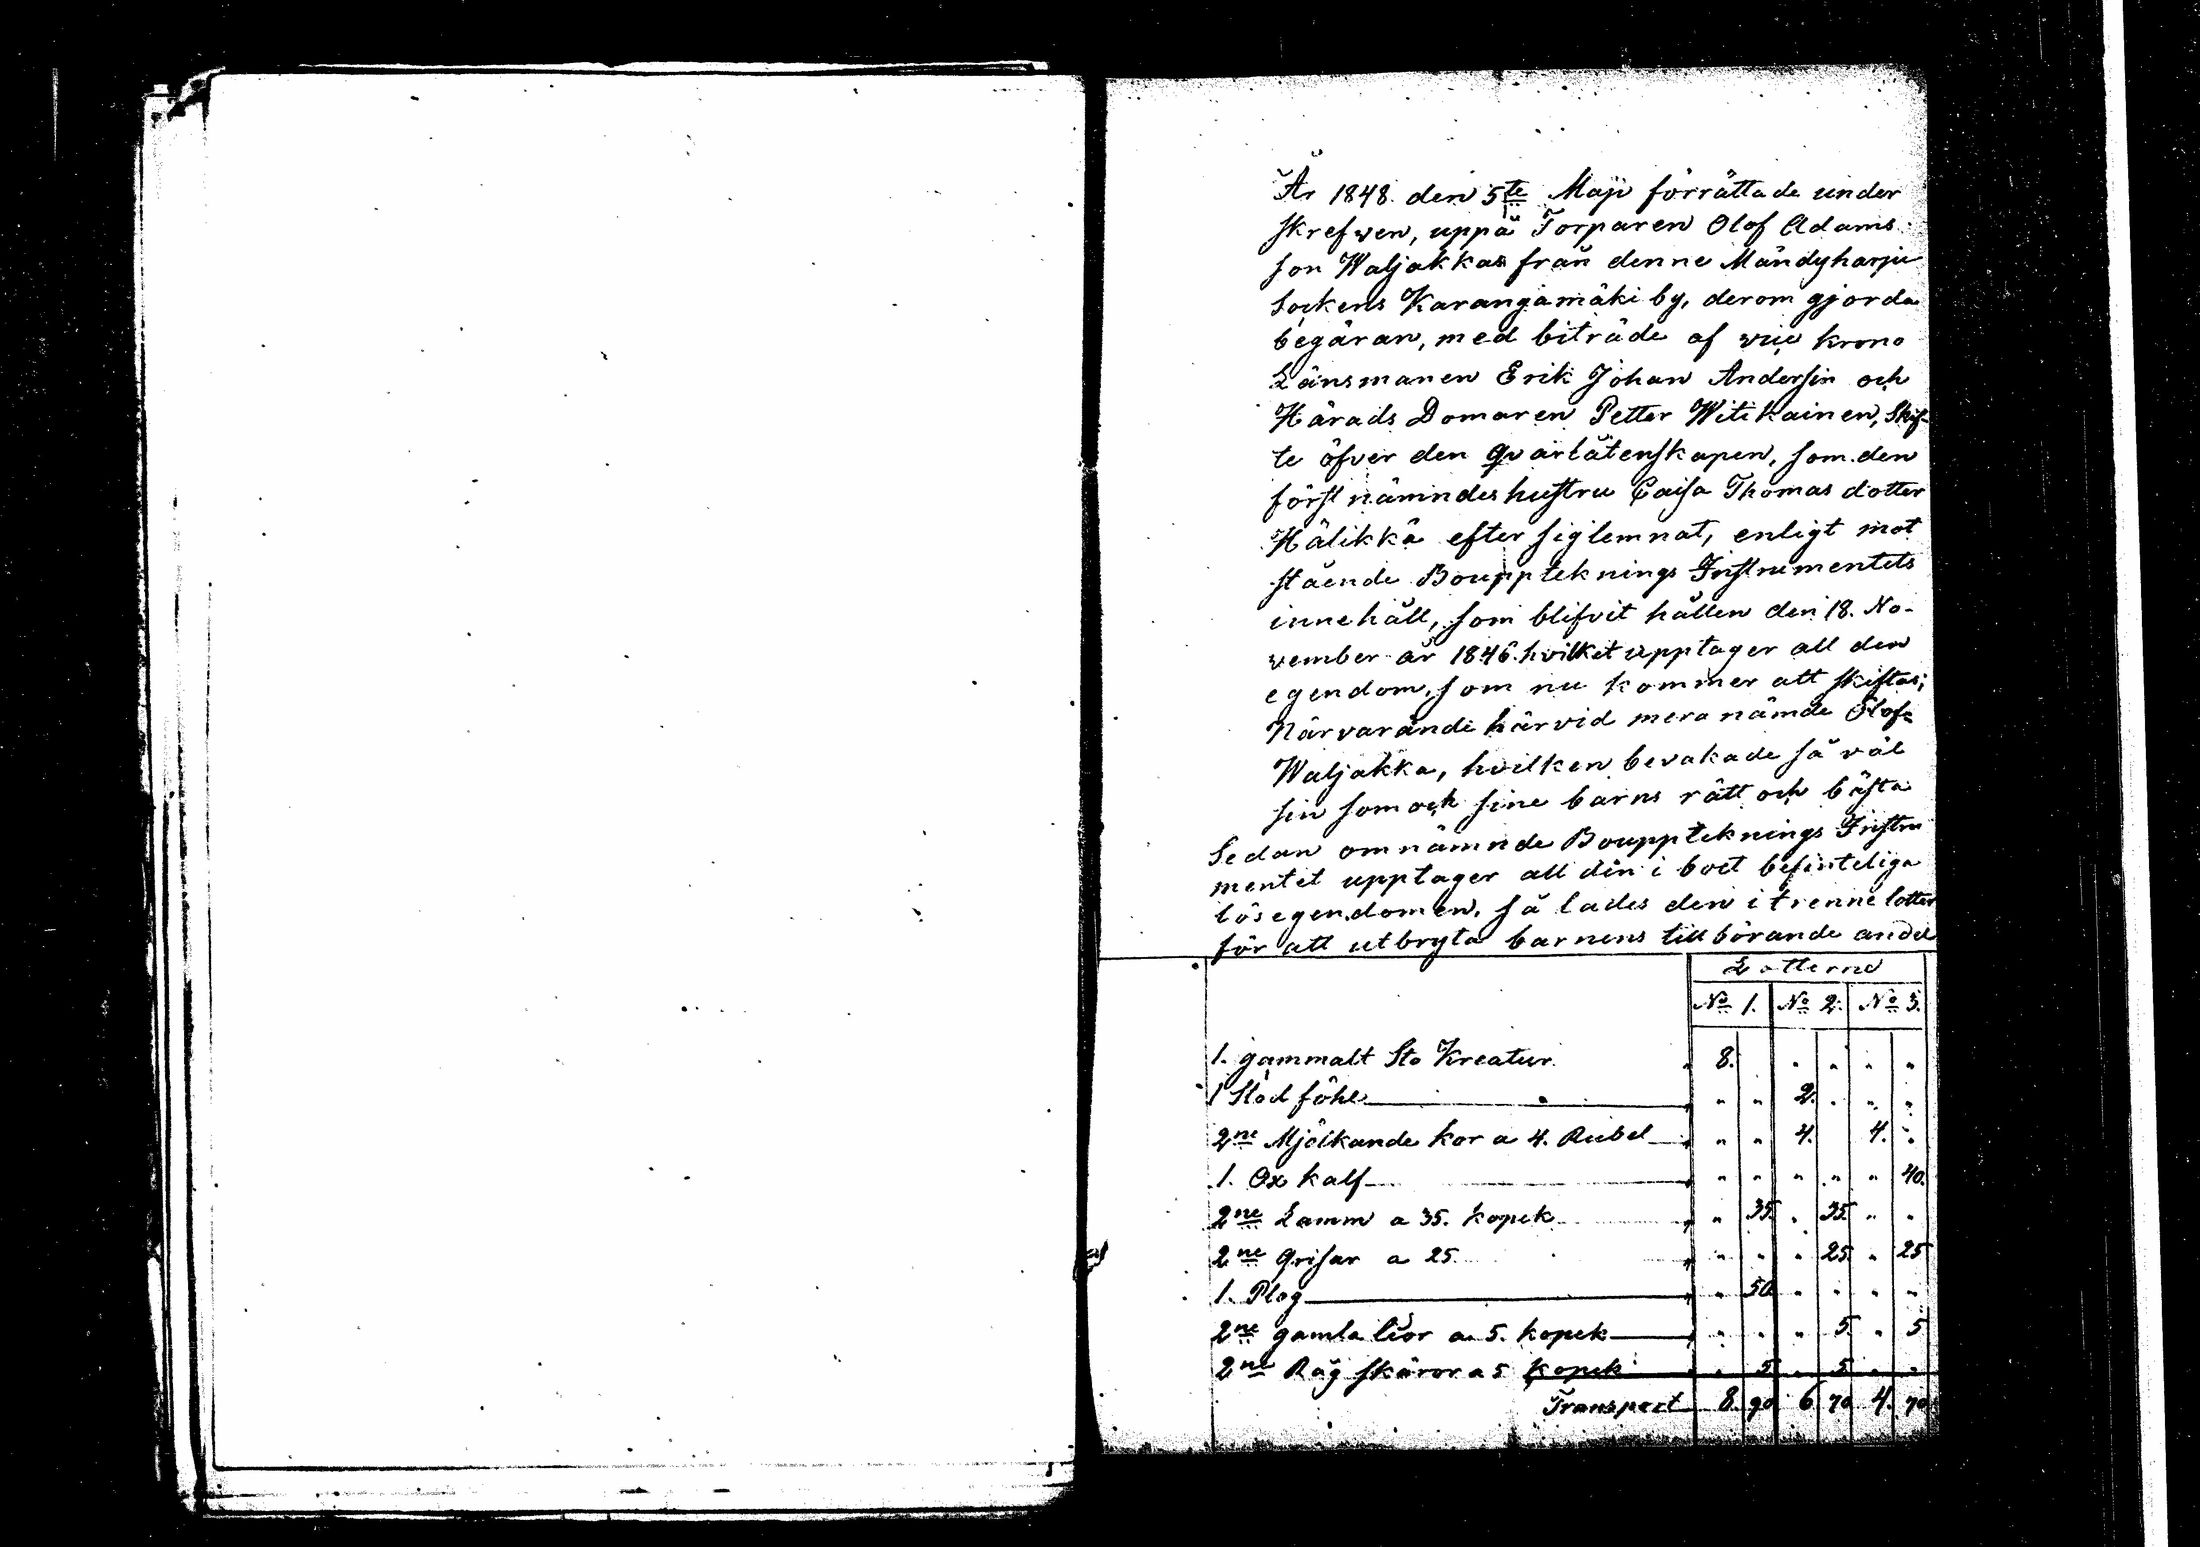 År 1848. den 5te Maji förrättade under
skrefven, uppå Torparen Olof Adams
son Waljakkas från denne Mändyharju
Sockens Karangamäki by, derom gjorda
begäran, med biträde af vice krono
Länsmanen Erik Johan Andersin och
Härads Domaren Petter Witikainen, Skif-
te öfver den qvarlåtenskapen, som den
förstnämndes hustru Caisa Thomas dotter
Hälikkä efter sig lemnat, enligt mot
stående Bouppteknings Instrumentets
innehåll, som blifvit hållen den 18. No-
vember år 1846. hvilket upptager all den
egendom, som nu kommer att skiftas;
Närvarande härvid mera nämde Olof
Waljakka, hvilken bevakade så väl
sin som och sine barns rätt och bästa
Sedan omnämnde Bouppteknings Instru
mentet upptager all den i boet befinteliga
lösegendomen, så lades den i trenne lotter
för att utbryta barnens tillbörande andel
Lotterne
No 1. No 2. No 3.
1. gammalt Sto Kreatur " 8. " " " "
1 Stod föhl " " " 2. " " "
2ne Mjölkande kor a 4. Rubel " " " 4. 4. "
1. Ox kalf " " " " " " 40.
2ne Lamm a 35. kopek " " 35. " 35. " "
2ne Grisar a 25. " " " " 25. " 25
1. Plog " " 50. " " " "
2ne gamla liar a 5. kopek " " " " 5. " 5
2ne Råg skäror a 5 kopek " " 5. " 5. " "
Transport 8. 90 6 70 4. 70